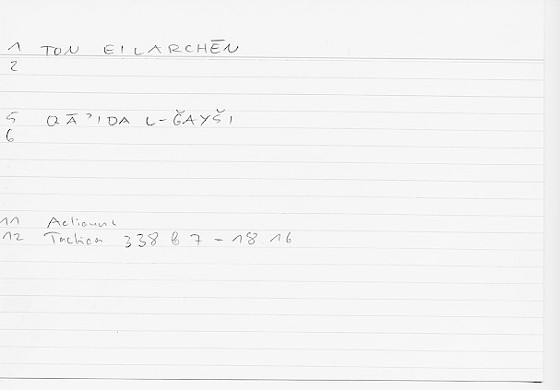 1 TON EILARCHĒN
2
5 QĀʾIDA L-ǦAYŠI
6
11
12 Tactica 338 B 7 - 18 16